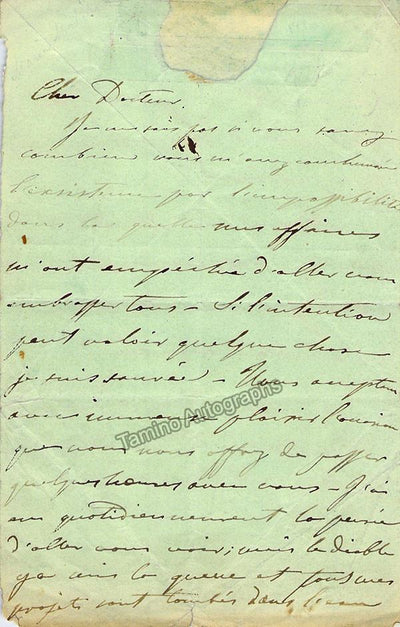 Cher Docteur,
Je ne sais pas si vous savez
combien vous m'avez
l'existence par l'impossibilité
dans laquelle mes affaires
m'ont empêchée d'aller vous
embrasser tous - Si l'intention
peut valoir quelque chose
je suis sauvée - Nous acceptons
avec immense plaisir l'occasion
que vous nous offrez de passer
quelques heures avec vous - J'ai
eu quotidiennement la pensée
d'aller vous voir, mais le diable
y a mis la queue et tous mes
projets sont tombés dans l'eau
Tamino Autographs